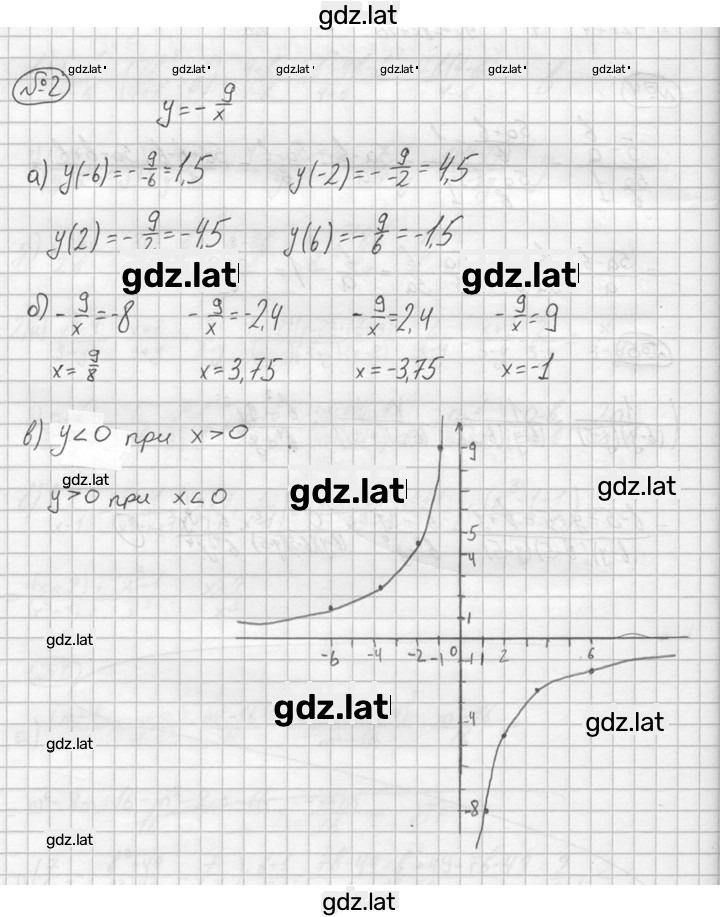 gdz.lat
gdz.lat gdz.lat gdz.lat gdz.lat gdz.lat gdz.lat
№2
y = - 9/x
а) y(-6) = - 9/-6 = 1,5 y(-2) = - 9/-2 = 4,5
y(2) = - 9/2 = -4,5 y(6) = - 9/6 = -1,5
gdz.lat gdz.lat
б) - 9/x = -8 - 9/x = -2,4 - 9/x = 2,4 - 9/x = 9
x = 9/8 x = 3,75 x = -3,75 x = -1
в) y < 0 при x > 0
gdz.lat
y > 0 при x < 0
gdz.lat gdz.lat
9
5
4
1
gdz.lat
-6 -4 -2 -1 0 -1 1 2 6
gdz.lat gdz.lat
-4
gdz.lat
-8
gdz.lat
gdz.lat